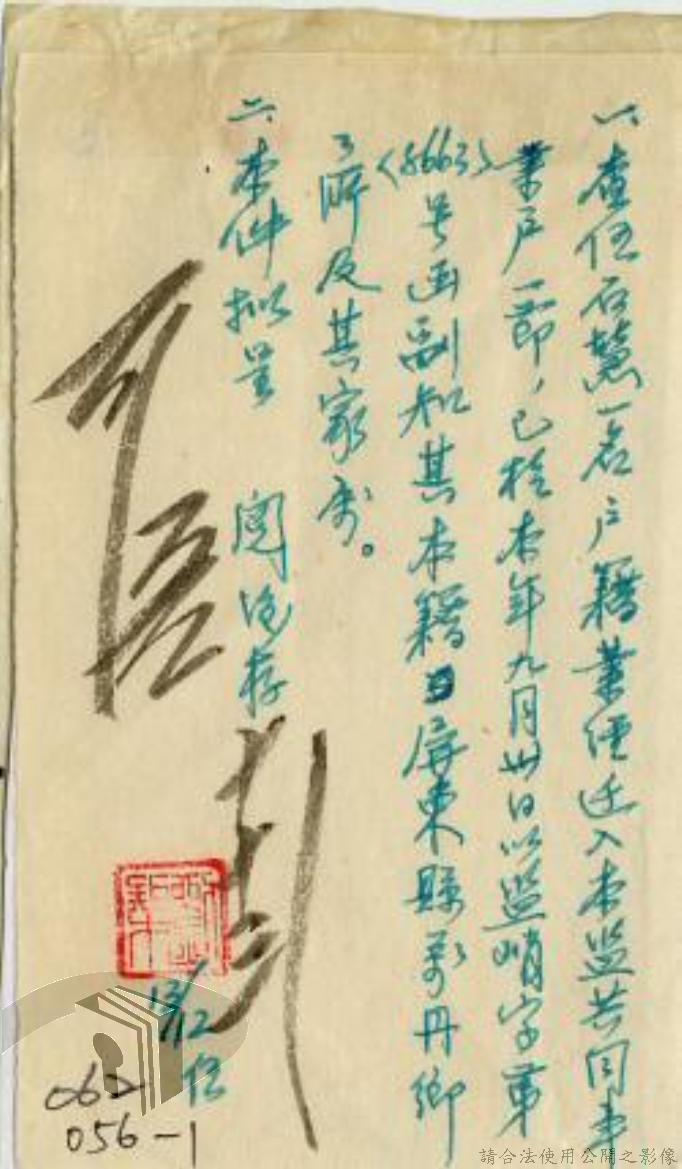 一、查伍石慧一名戶籍業經迁入本監共同事
業戶一節，已於本年九月卅日以監哨字第
(8663)号函副知其本籍屏東縣萬丹鄉
公所及其家屬。
二、本件拟呈 閱後存
13/12
062
056-1
請合法使用公開之影像